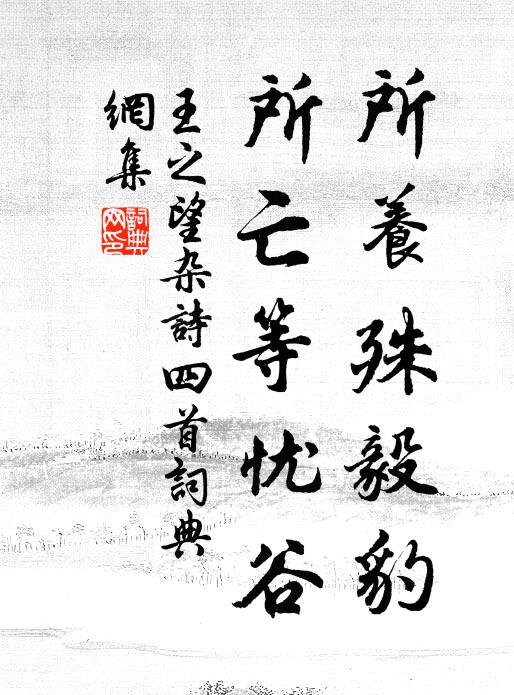 所養殊毅豹
所亡等忧谷
王之望杂詩四首詞典
網集
詞典
网印